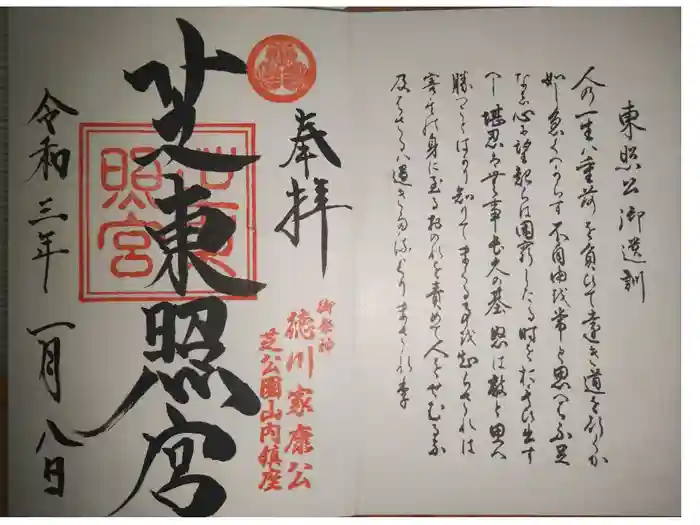 東照公御遺訓
人の一生ハ重荷を負ひて遠き道を行くか
如し急くへからす不自由を常と思へハ不足
なし心に望起らは困窮したる時をおもひ出す
へし堪忍ハ無事長久の基怒は敵と思へ
勝つことはかり知りてまくる事を知らされは
害其の身に至るおのれを責めて人をせむるな
及はさるハ過きたるよりまされり
奉拝
御祭神
徳川家康公
芝公園山内鎮座
芝東照宮
芝東照宮
令和三年一月八日